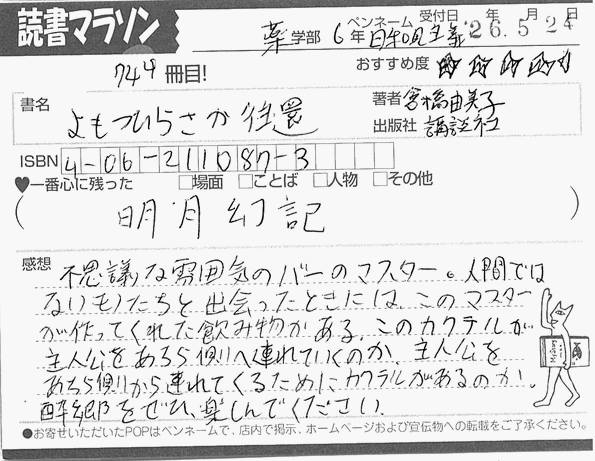 読書マラソン
薬学部 6年 ペンネーム 日和見主義 受付日 26年 5月 24日
744冊目! おすすめ度 ☆☆☆☆☆
書名 よもつひらさか往還
著者名 倉橋由美子
出版社 講談社
ISBN 4-06-211087-3
♥一番心に残った □場面 □ことば □人物 □その他
( 明月幻記 )
感想 不思議な雰囲気のバーのマスター。人間では
ないものたちと出会ったときには、このマスター
が作ってくれた飲み物がある。このカクテルが
主人公をあちら側へ連れていくのか、主人公を
あちら側から連れてくるためにカクテルがあるのか。
酔郷をぜひ、楽しんでください。
●お寄せいただいたPOPはペンネームで、店内で掲示、ホームページおよび宣伝物への転載をご了承ください。